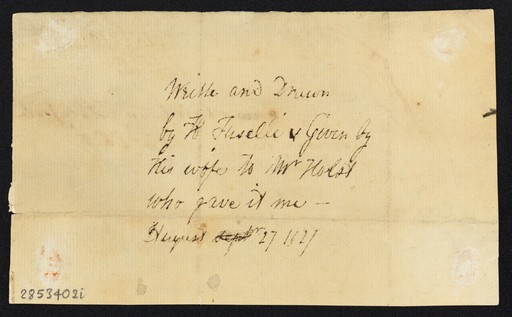 Write and Drawn
by H Fuselie & Given by
His wife to Mr Holst
who gave it me —
August Septbr 27 1827
2853402i